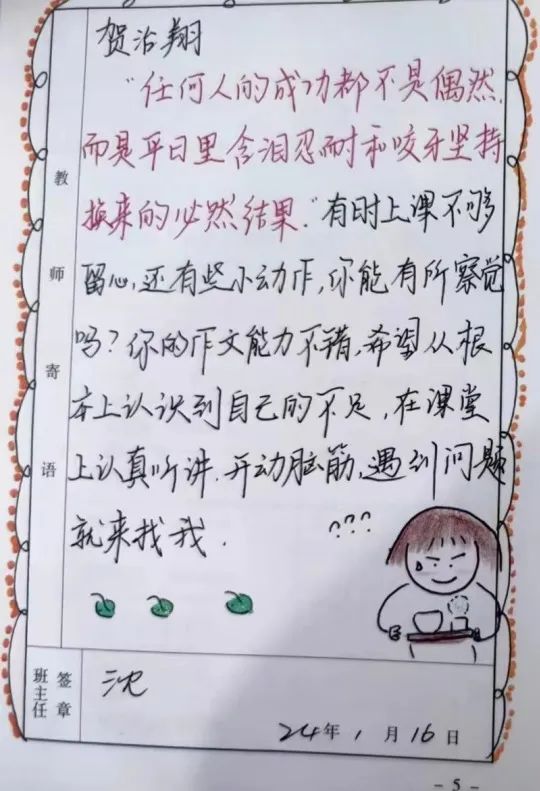 贺治翔
“任何人的成功都不是偶然,
而是平日里含泪忍耐和咬牙坚持
换来的必然结果.”有时上课不够
留心,还有些小动作,你能有所察觉
吗?你的作文能力不错,希望从根
本上认识到自己的不足,在课堂
上认真听讲.开动脑筋,遇到问题
就来找我.
???
教师寄语
班主任签章
沈
24年1月16日
- 5 -